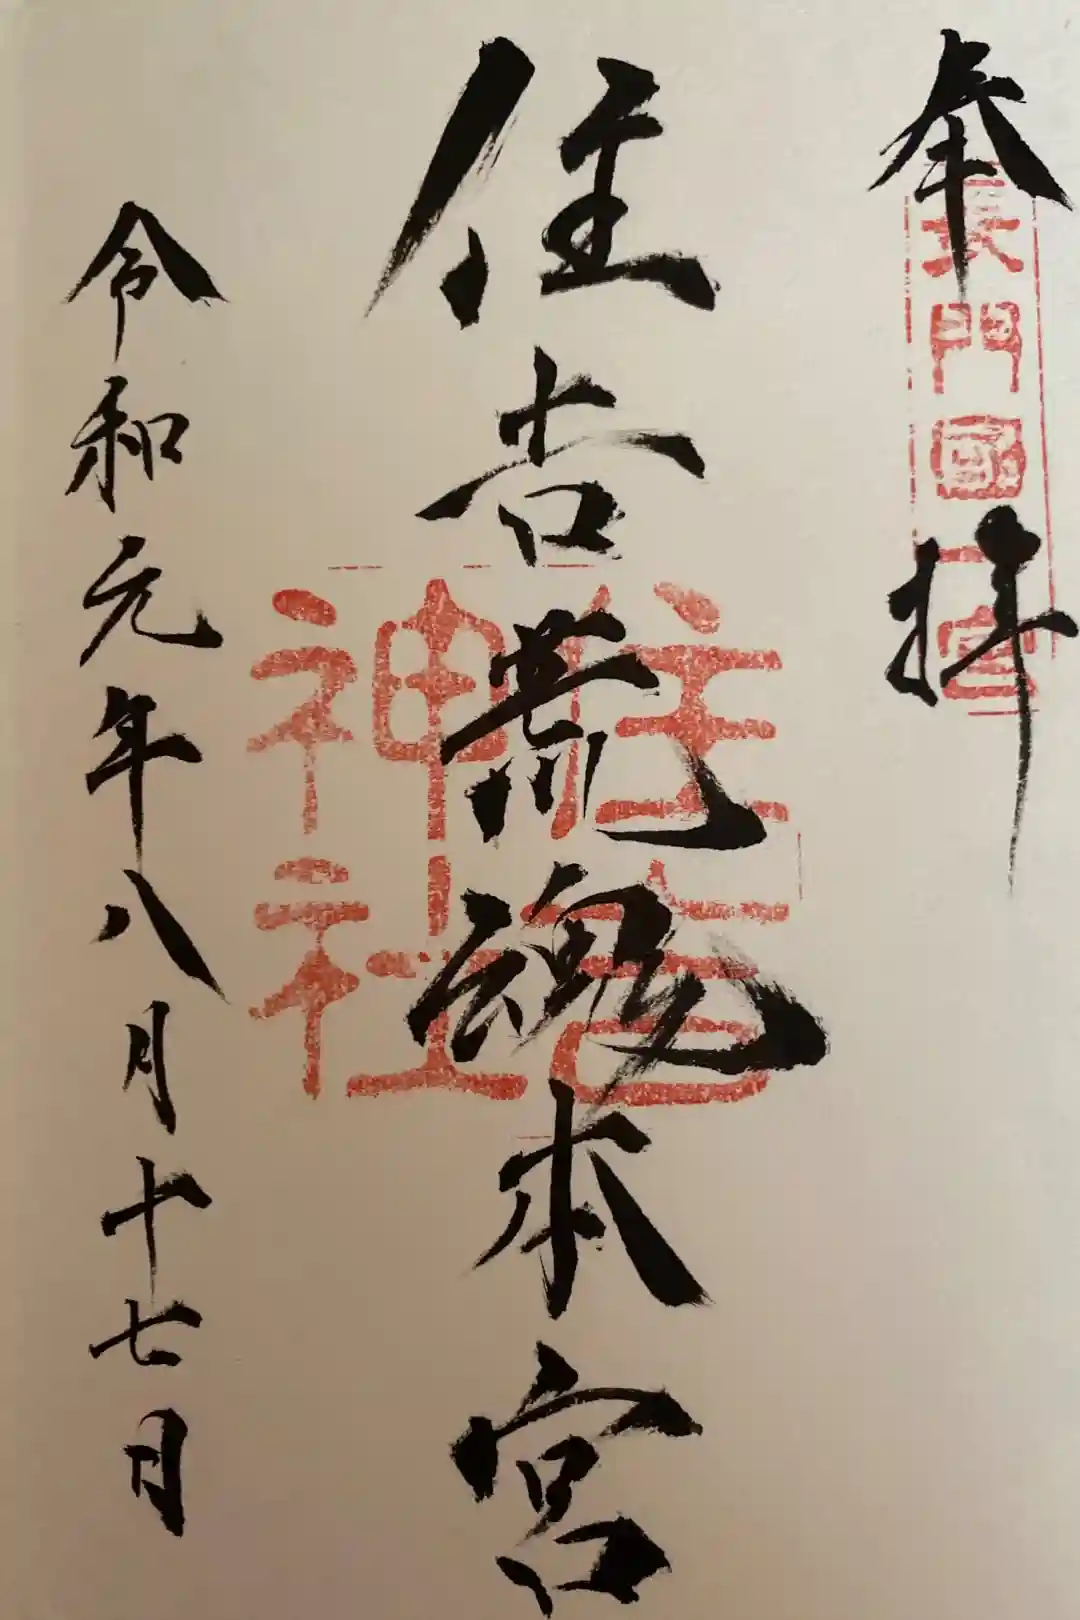 奉拝
長門國一宮
住吉荒魂本宮
住吉
神社
令和元年八月十七日